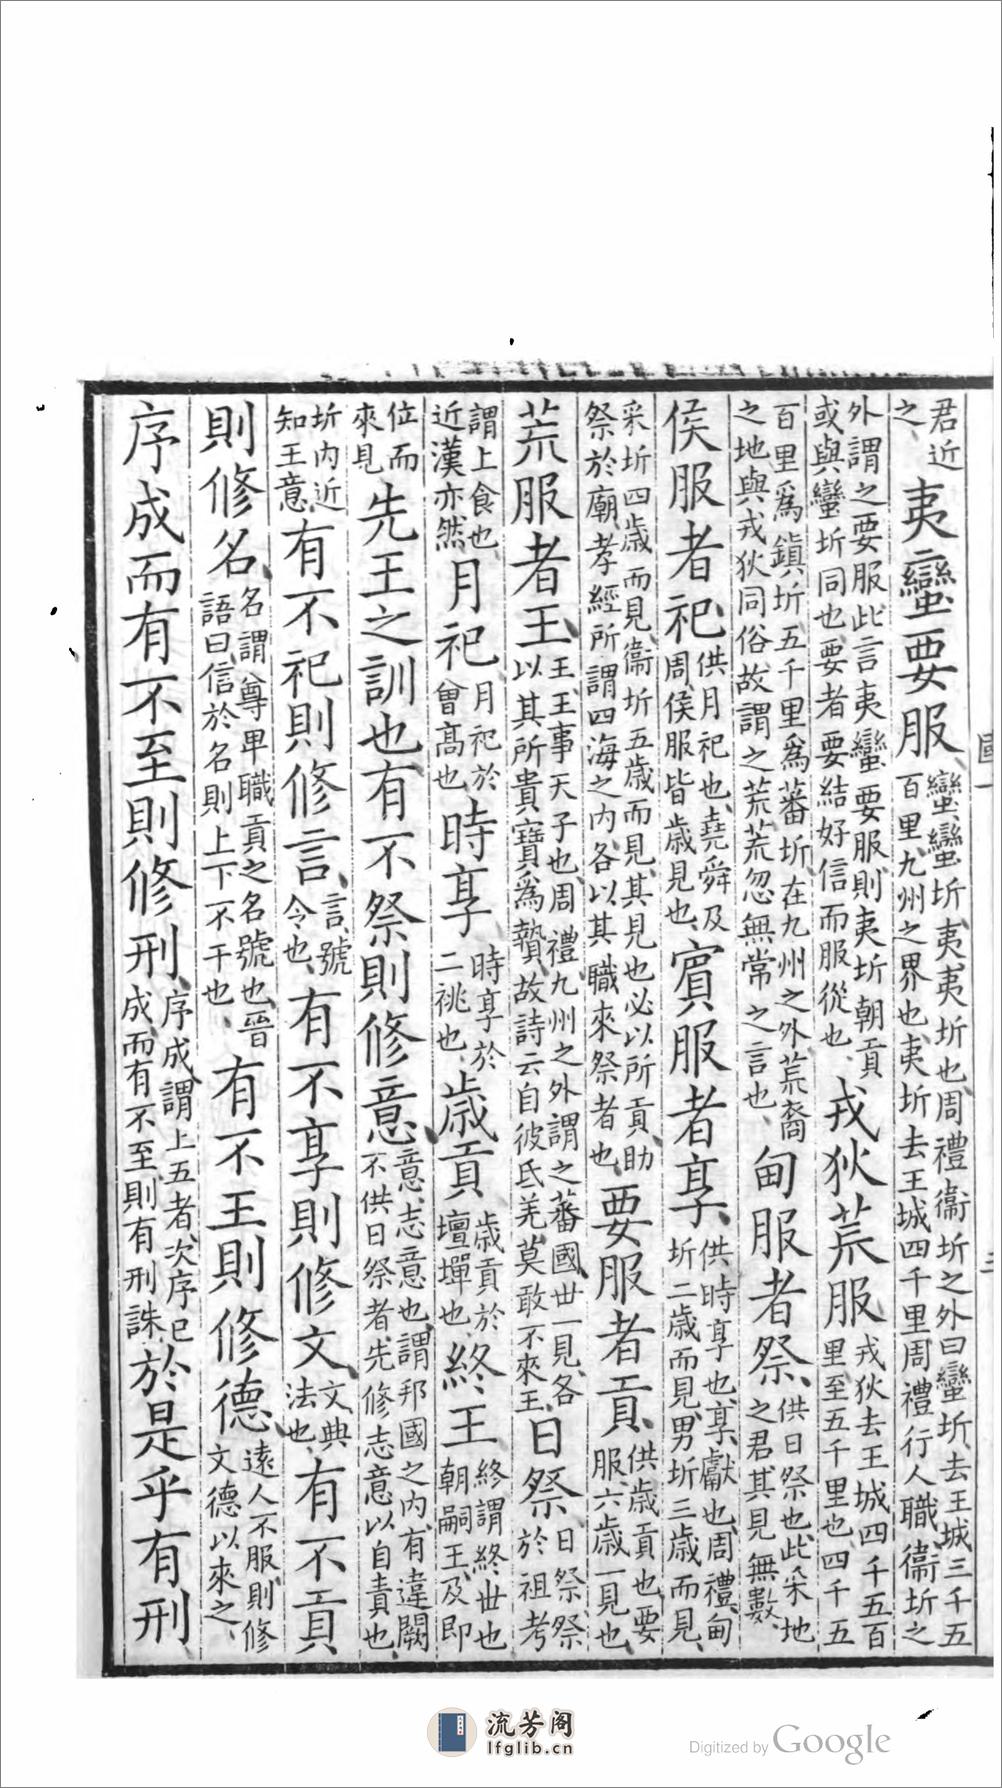 君近之夷蠻要服蠻蠻圻夷夷圻也周禮衞圻之外曰蠻圻去王城三千五百里九州之界也夷圻去王城四千里周禮行人職衞圻之
外謂之要服此言夷蠻要服則夷圻朝貢或與蠻圻同也要者要結好信而服從也戎狄荒服戎狄去王城四千五百里至五千里也四千五
百里爲鎮圻五千里爲蕃圻在九州之外荒裔之地與戎狄同俗故謂之荒荒忽無常之言也甸服者祭供日祭也此采地之君其見無數
侯服者祀供月祀也堯舜及周侯服皆歳見也賓服者享供時享也享獻也周禮甸圻二歳而見男圻三歳而見
采圻四歳而見衞圻五歳而見其見也必以所貢助祭於廟孝經所謂四海之內各以其職來祭者也要服者貢供歳貢也要服六歳一見也
荒服者王王王事天子也周禮九州之外謂之蕃國世一見各以其所貴寶爲贄故詩云自彼氐羌莫敢不來王日祭日祭祭於祖考
謂上食也近漢亦然月祀月祀於曾高也時享時享於二祧也歳貢歳貢於壇墠也終王終謂終世也朝嗣王及即
位而來見先王之訓也有不祭則修意意志意也謂邦國之內有違闕不供日祭者先修志意以自責也
圻内近知王意有不祀則修言言號令也有不享則修文文典法也有不貢
則修名名謂尊卑職貢之名號也晉語曰信於名則上下不干也有不王則修德遠人不服則修文德以來之
序成而有不至則修刑序成謂上五者次序已成而有不至則有刑誅於是乎有刑
流芳阁
lfglib.cn
Digitized by Google